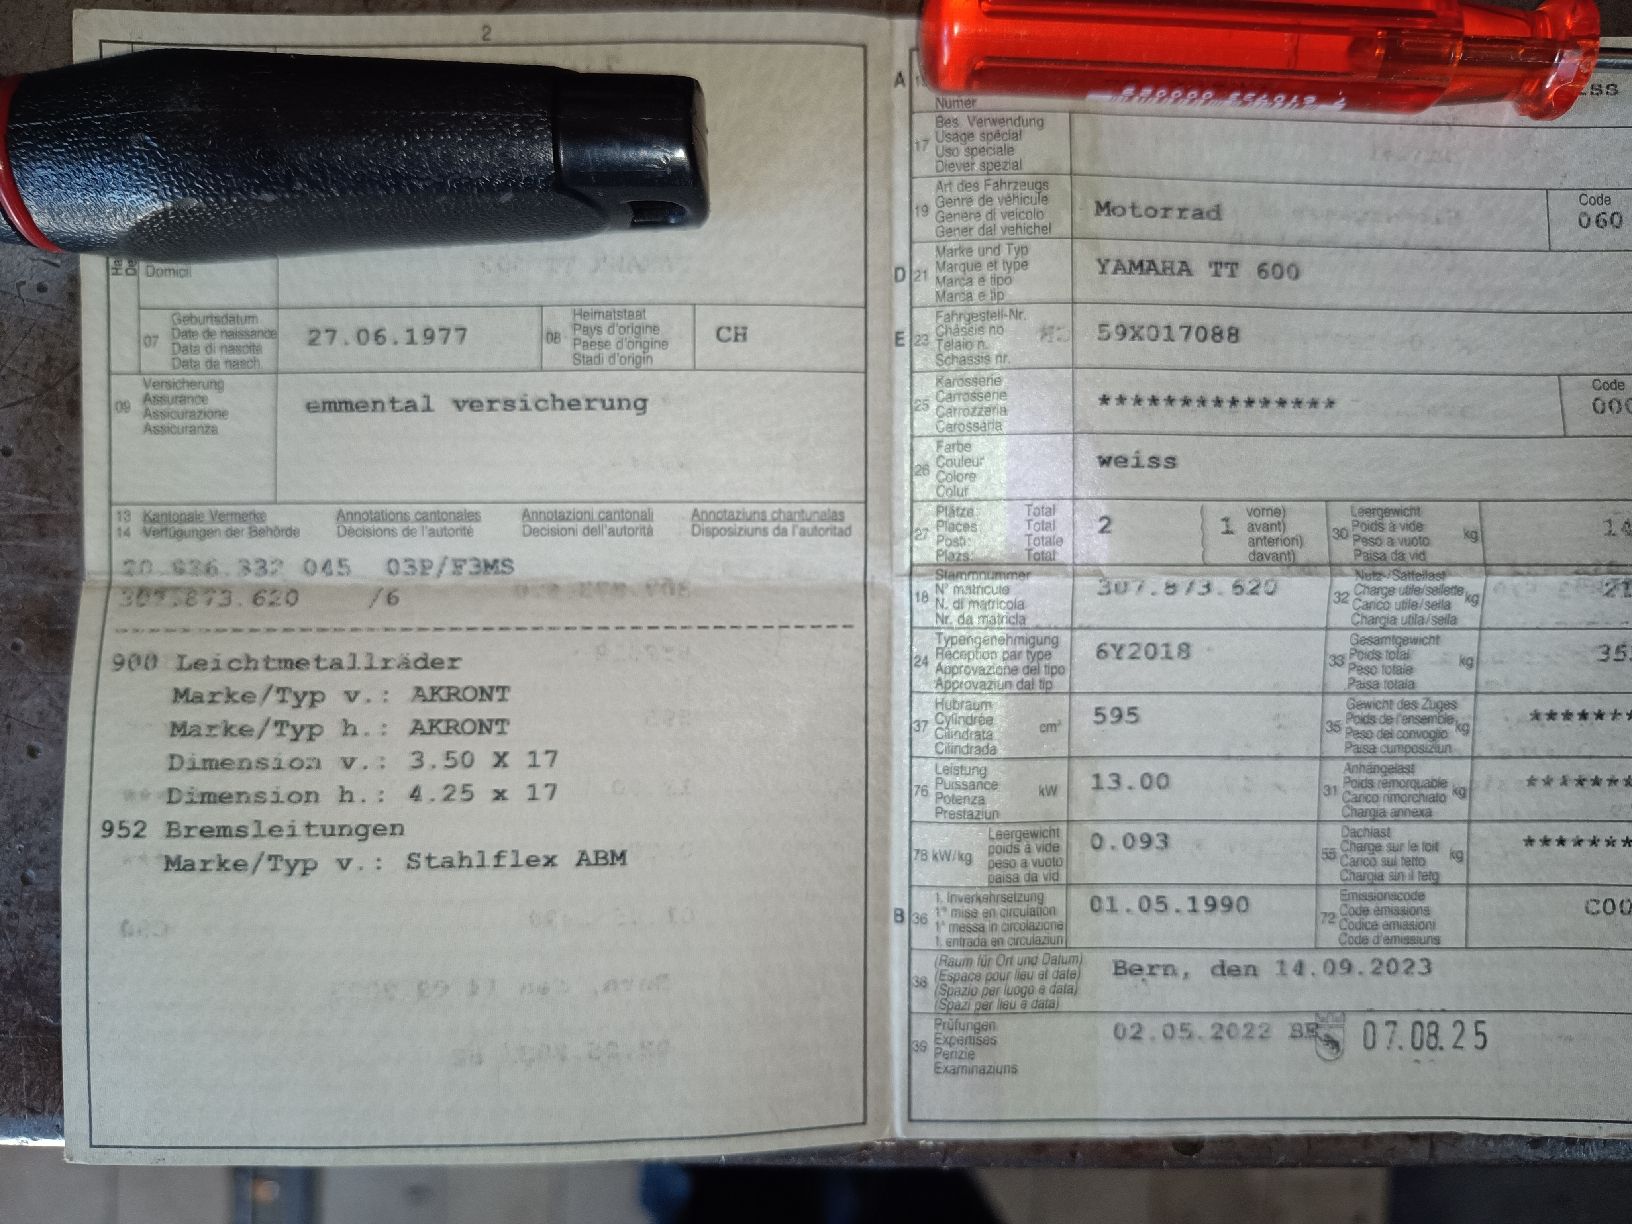 2
Domicil
07 Geburtsdatum
Date de naissance
Data di nascita
Data da nasch.
27.06.1977
08 Heimatstaat
Pays d'origine
Paese d'origine
Stadi d'origin
CH
09 Versicherung
Assurance
Assicurazione
Assicuranza
emmental versicherung
13 Kantonale Vermerke Annotations cantonales Annotazioni cantonali Annotaziuns chantunalas
14 Verfügungen der Behörde Décisions de l'autorité Decisioni dell'autorità Disposiziuns da l'autoritad
20.636.332 045 03P/F3MS
307.873.620 /6
900 Leichtmetallräder
Marke/Typ v.: AKRONT
Marke/Typ h.: AKRONT
Dimension v.: 3.50 X 17
Dimension h.: 4.25 x 17
952 Bremsleitungen
Marke/Typ v.: Stahlflex ABM
A
Numer
17 Bes. Verwendung
Usage spécial
Uso speciale
Diever spezial
19 Art des Fahrzeugs
Genre de véhicule
Genere di veicolo
Gener dal vehichel
Motorrad
Code
060
D 21 Marke und Typ
Marque et type
Marca e tipo
Marca e tip
YAMAHA TT 600
E 23 Fahrgestell-Nr.
Châssis no
Telaio n.
Schassis nr.
59X017088
25 Karosserie
Carrosserie
Carrozzeria
Carossaria
***************
Code
000
26 Farbe
Couleur
Colore
Colur
weiss
27 Plätze: Total
Places: Total
Posti: Totale
Plazs: Total
2
( 1 vorne)
avant)
anteriori)
davant)
30 Leergewicht
Poids à vide
Peso a vuoto
Paisa da vid
kg
14
18 Stammnummer
N° matricule
N. di matricola
Nr. da matricla
307.873.620
32 Nutz-/Sattellast
Charge utile/sellette
Carico utile/sella
Chargia utila/sella
kg
21
24 Typengenehmigung
Réception par type
Approvazione del tipo
Approvaziun dal tip
6Y2018
33 Gesamtgewicht
Poids total
Peso totale
Paisa totala
kg
35
37 Hubraum
Cylindrée
Cilindrata
Cilindrada
cm³
595
35 Gewicht des Zuges
Poids de l'ensemble
Peso del convoglio
Paisa cumposiziun
kg
*******
76 Leistung
Puissance
Potenza
Prestaziun
kW
13.00
31 Anhängelast
Poids remorquable
Carico rimorchiato
Chargia annexa
kg
*******
78 kW/kg Leergewicht
poids à vide
peso a vuoto
paisa da vid
0.093
55 Dachlast
Charge sur le toit
Carico sul tetto
Chargia sin il tetg
kg
*******
B 36 1. Inverkehrsetzung
1re mise en circulation
1a messa in circolazione
1. entrada en circulaziun
01.05.1990
72 Emissionscode
Code émissions
Codice emissioni
Code d'emissiuns
C00
38 (Raum für Ort und Datum)
(Espace pour lieu et date)
(Spazio per luogo e data)
(Spazi per lieu e data)
Bern, den 14.09.2023
39 Prüfungen
Expertises
Perizie
Examinaziuns
02.05.2022 BE 07.08.25